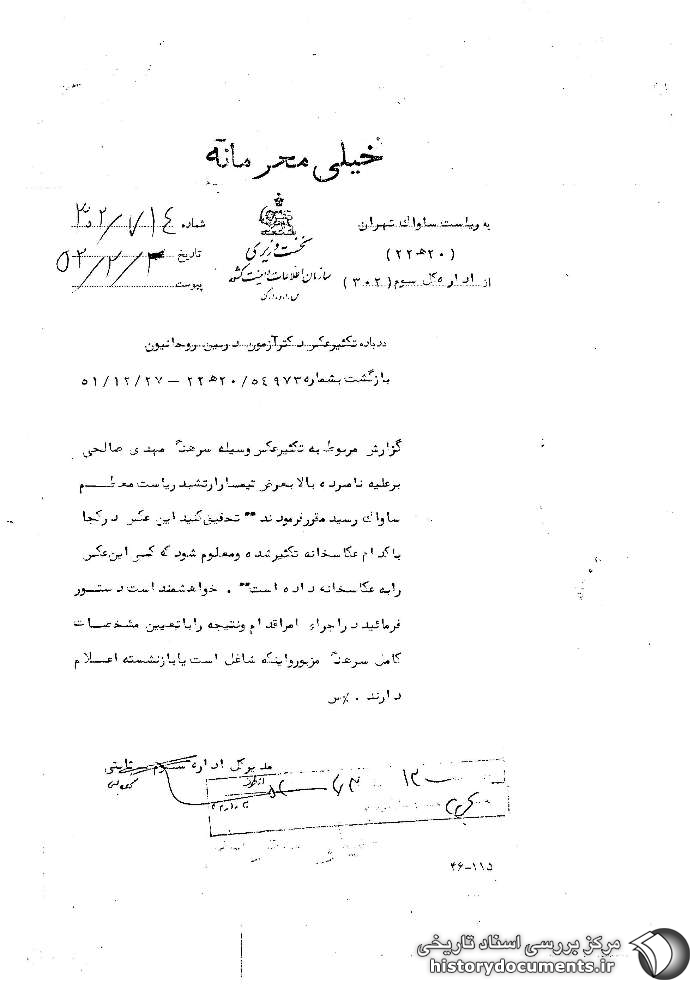 خیلی محرمانه
به ریاست ساواک تهران
(۲۰ه۲۲)
از اداره کل سوم (۳۰۲)
نخست وزیری
سازمان اطلاعات و امنیت کشور
س.ا.و.ا.ک
شماره ۳۰۲/۷۱۴
تاریخ ۵۲/۲/۳
پیوست
درباره تکثیر عکس دکتر آزمون در بین روحانیون
بازگشت بشماره ۵۴۹۷۳/۲۰ه۲۲ – ۵۱/۱۲/۲۷
گزارش مربوط به تکثیر عکس وسیله سرهنگ مهدی صالحی
برعلیه نامبرده بالا بعرض تیمسار ارتشبد ریاست معظم
ساواک رسید مقرر فرمودند "تحقیق کنید این عکس در کجا
یا کدام عکاسخانه تکثیر شده و معلوم شود که کسر این عکس
را به عکاسخانه داده است" . خواهشمند است دستور
فرمائید در اجراء امر اقدام و نتیجه را با تعیین مشخصات
کامل سرهنگ مزبور و اینکه شاغل است یا بازنشسته اعلام
دارند . %س
مدیر کل اداره سوم ثابتی
از طرف
۴۶-۱۱۵
مرکز بررسی اسناد تاریخی
historydocuments.ir